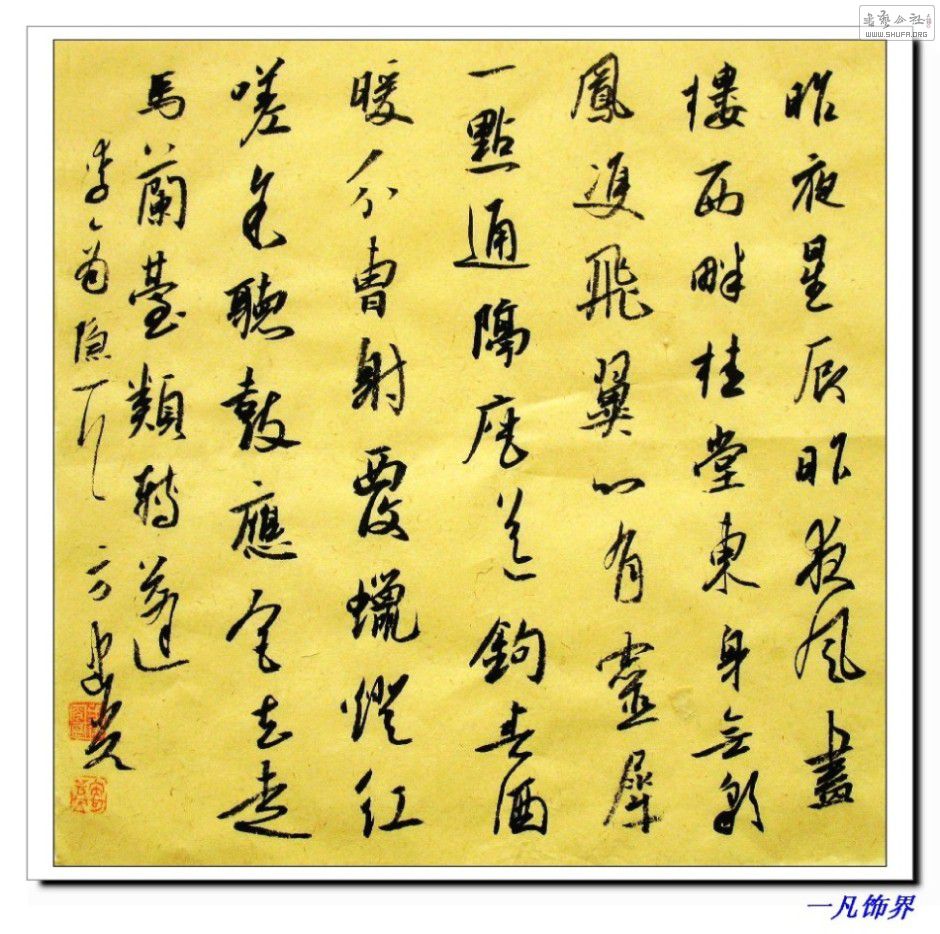 昨夜星辰昨夜風畫
樓西畔桂堂東身無彩
鳳雙飛翼心有靈犀
一點通隔座送鉤春酒
暖分曹射覆蠟燈紅
嗟余聽鼓應官去走
馬蘭臺類轉蓬
李商隱
書藝公社
WWW.SHUFA.ORG
一凡饰界